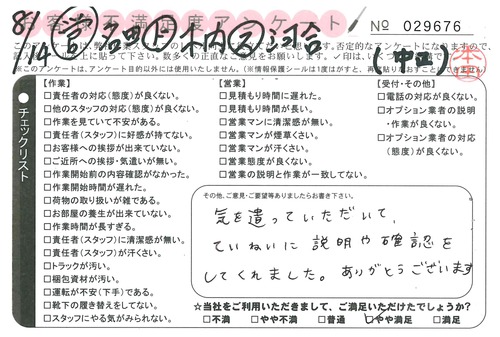 お客様不満足度アンケート
№ 029676
8/14 営 名四 上 木内 2 河合
(中四)
本
※このアンケートは、アンケート目的以外には使用いたしません。(※情報保護シールは1度はがすと、再
チェックリスト
【作業】
□責任者の対応(態度)が良くない。
□他のスタッフの対応(態度)が良くない。
□作業を見ていて不安がある。
□責任者(スタッフ)に好感が持てない。
□お客様への挨拶が出来ていない。
□ご近所への挨拶・気遣いが無い。
□作業開始前の内容確認がなかった。
□作業開始時間が遅れた。
□荷物の取り扱いが雑である。
□お部屋の養生が出来ていない。
□作業時間が長すぎる。
□責任者(スタッフ)に清潔感が無い。
□責任者(スタッフ)が汗くさい。
□トラックが汚い。
□梱包資材が汚い。
□運転が不安(下手)である。
□靴下の履き替えをしてない。
□スタッフにやる気がみられない。
【営業】
□見積もり時間に遅れた。
□見積もり時間が長い。
□営業マンに清潔感が無い。
□営業マンが煙草くさい。
□営業マンが汗くさい。
□営業態度が良くない。
□営業の説明と作業が一致してない。
【受付・その他】
□電話の対応が良くない。
□オプション業者の説明
・作業が良くない。
□オプション業者の対応
(態度)が良くない。
その他、ご意見・ご要望等ありましたらお書き下さい。
気を遣っていただいて、
ていねいに説明や確認を
してくれました。ありがとうございます
☆当社をご利用いただきまして、ご満足いただけたでしょうか?
□不満 □やや不満 □普通 □やや満足 □満足